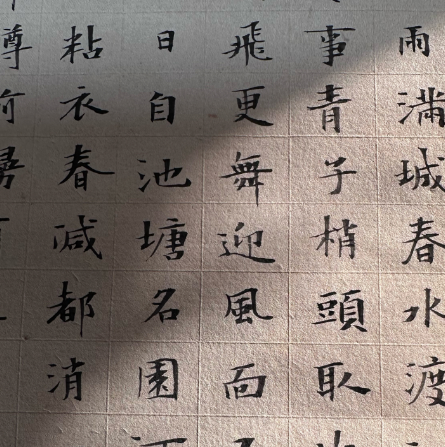 雨滿城春水渡
事青子梢頭取
飛更舞迎風面
日自池塘名園
粘衣春減都消